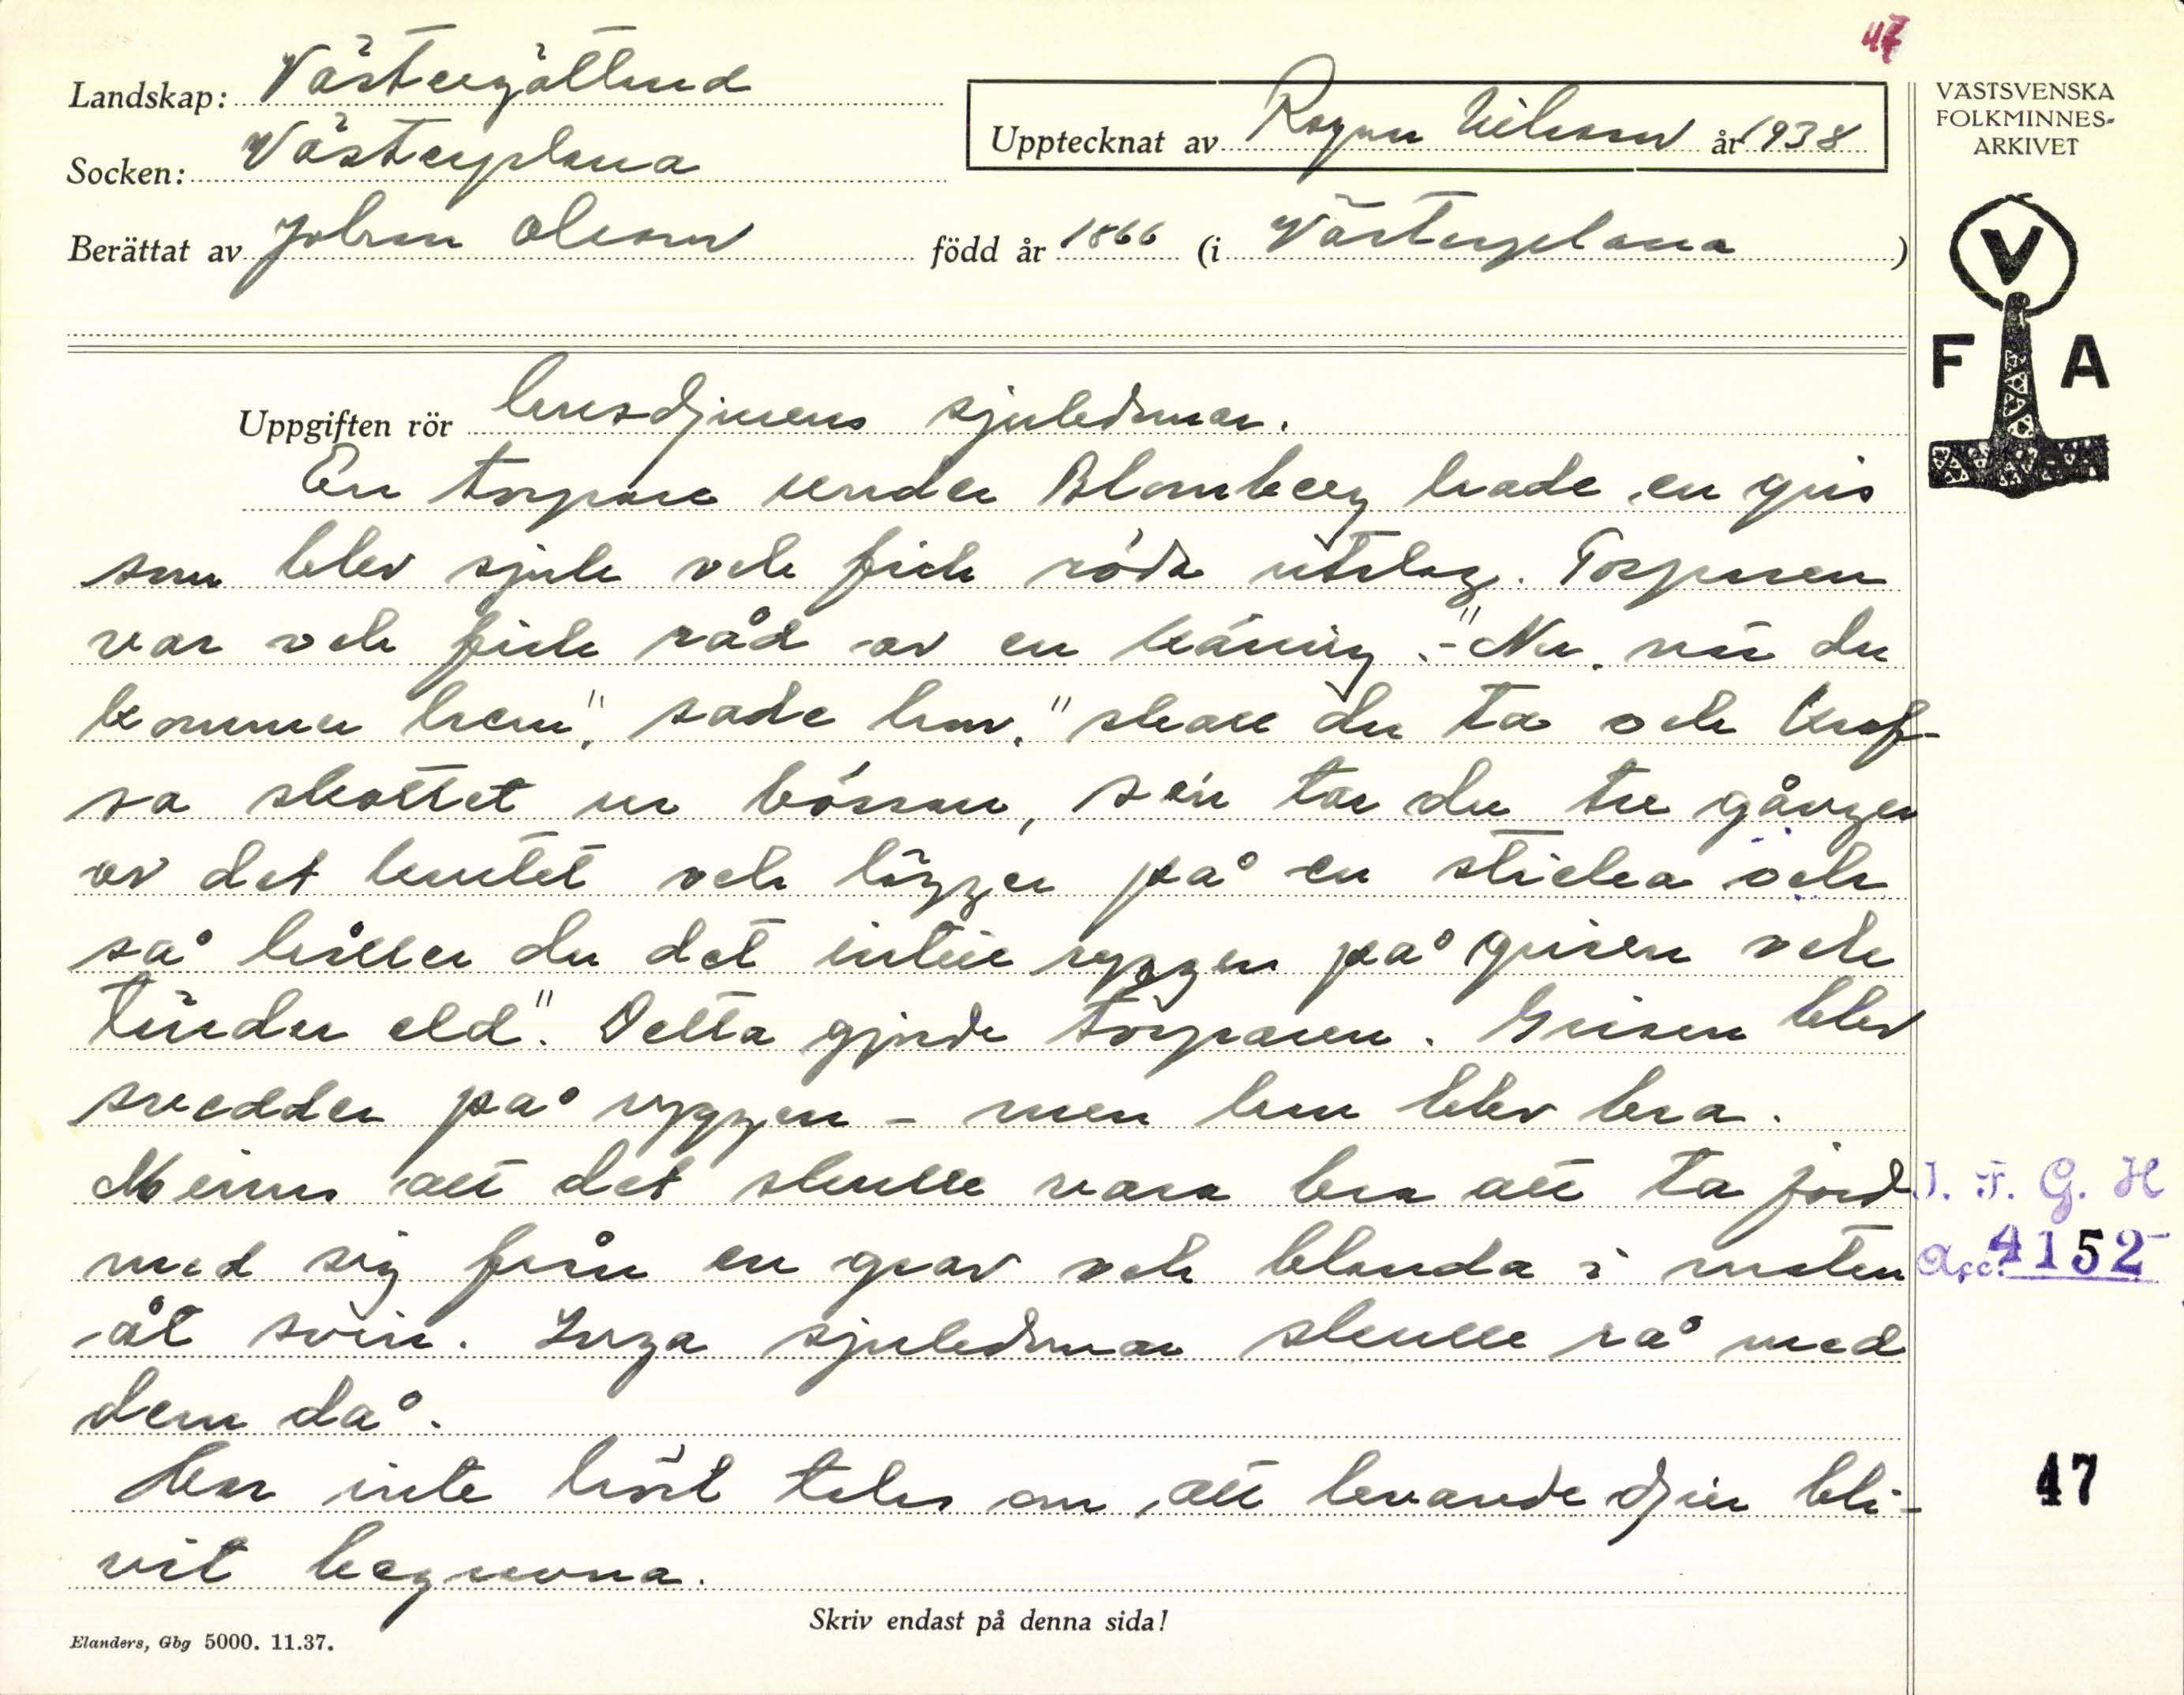 47
Landskap: Västergötland
Socken: Västerplana
Upptecknat av Ragnar Nilsson år 1938
Berättat av Johan Olsson född år 1866 (i Västerplana)
VÄSTSVENSKA
FOLKMINNES-
ARKIVET
V
F A
Uppgiften rör husdjurens sjukdomar.
En torpare under Blomberg hade en gris
som blev sjuk och fick röda utslag. Torparen
var och fick råd av en käring.-"Nu, när du
kommer hem", sade hon, "skall du ta och kraf-
sa skottet ur bössan, sen tar du tre gånger
av det krutet och lägger på en sticka och
så håller du det intill ryggen på grisen och
tänder eld". Detta gjorde torparen. Grisen blev
svedder på ryggen - men hun blev bra.
Minns att det skulle vara bra att ta jord
med sig från en grav och blanda i maten
åt svin. Inga sjukdomar skulle rå med
dem då.
Har inte hört talas om, att levande djur bli-
vit begravna.
I. F. G. H
Acc. 4152
47
Skriv endast på denna sida!
Elanders, Gbg 5000. 11.37.